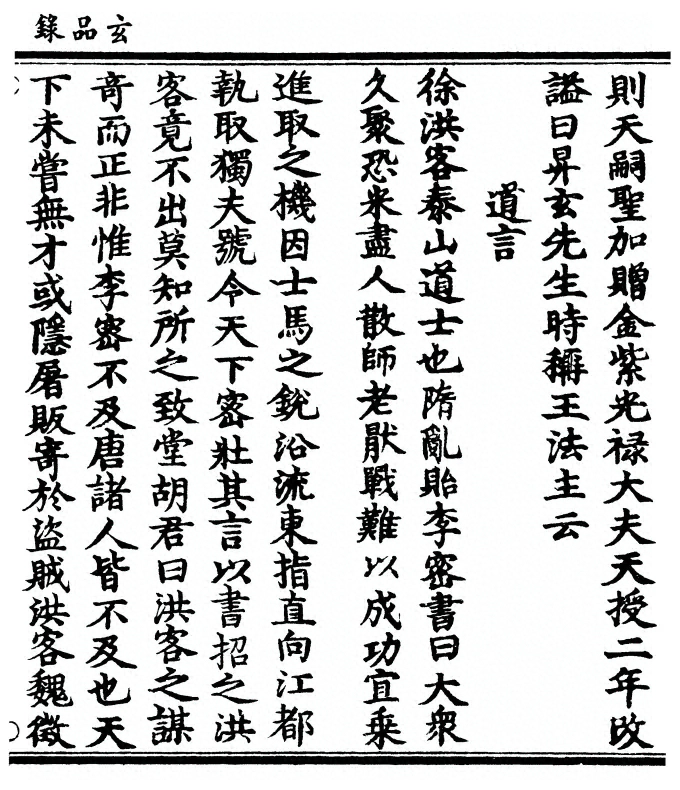 玄品錄
則天嗣聖加贈金紫光祿大夫天授二年改
謚曰昇玄先生時稱王法主云
道言
徐洪客泰山道士也隋亂貽李密書曰大衆
久聚恐米盡人散師老厭戰難以成功宜乘
進取之機因士馬之銳沿流東指直向江都
執取獨夫號令天下密壯其言以書招之洪
客竟不出莫知所之致堂胡君曰洪客之謀
竒而正非惟李密不及唐諸人皆不及也天
下未嘗無才或隱屠販寄於盜賊洪客魏徵